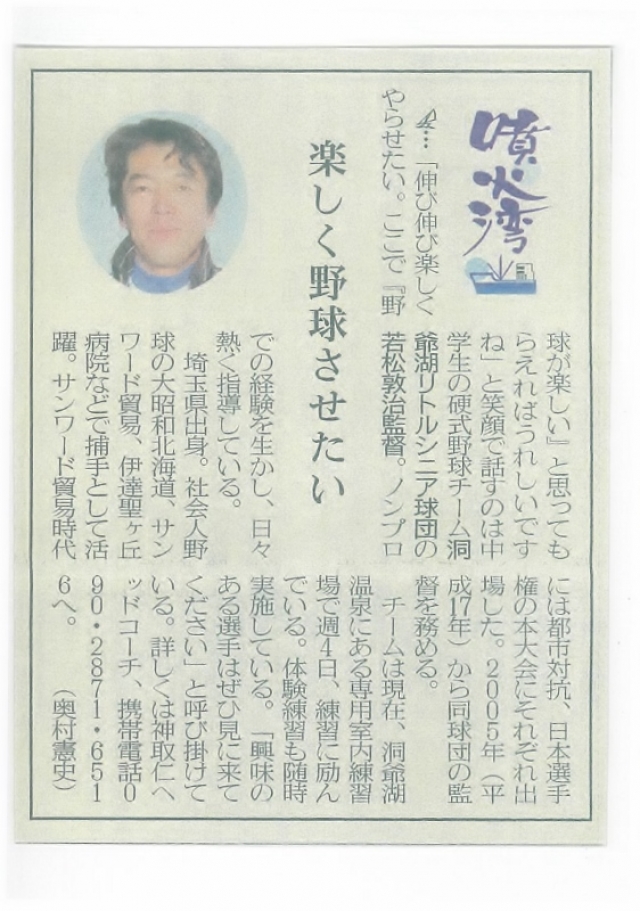 噴火湾
楽しく野球させたい
…「伸び伸び楽しく
やらせたい。ここで『野
球が楽しい』と思っても
らえればうれしいです
ね」と笑顔で話すのは中
学生の硬式野球チーム洞
爺湖リトルシニア球団の
若松敦治監督。ノンプロ
での経験を生かし、日々
熱く指導している。
埼玉県出身。社会人野
球の大昭和北海道、サン
ワード貿易、伊達聖ヶ丘
病院などで捕手として活
躍。サンワード貿易時代
には都市対抗、日本選手
権の本大会にそれぞれ出
場した。2005年（平
成17年）から同球団の監
督を務める。
チームは現在、洞爺湖
温泉にある専用室内練習
場で週4日、練習に励ん
でいる。体験練習も随時
実施している。「興味の
ある選手はぜひ見に来て
ください」と呼び掛けて
いる。詳しくは神取仁ヘ
ッドコーチ、携帯電話0
90・2871・651
6へ。　（奥村憲史）